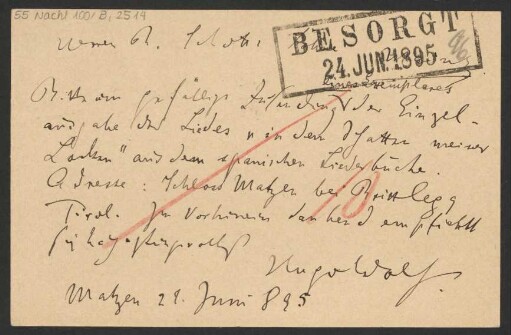 55 Nachl 100/B, 2514
Herrn B. Schott's Söhne
BESORGT
24. JUN. 1895
eines Exemplares
Bitte um gefällige Zusendung der Einzel-
ausgabe des Liedes "in dem Schatten meiner
Locken" aus dem spanischen Liederbuche.
Adresse: Schloss Matzen bei Brixlegg
Tirol. Im Vorhinein dankend empfiehlt
sich hochachtungsvollst
Hugo Wolf.
Matzen 22. Juni 895